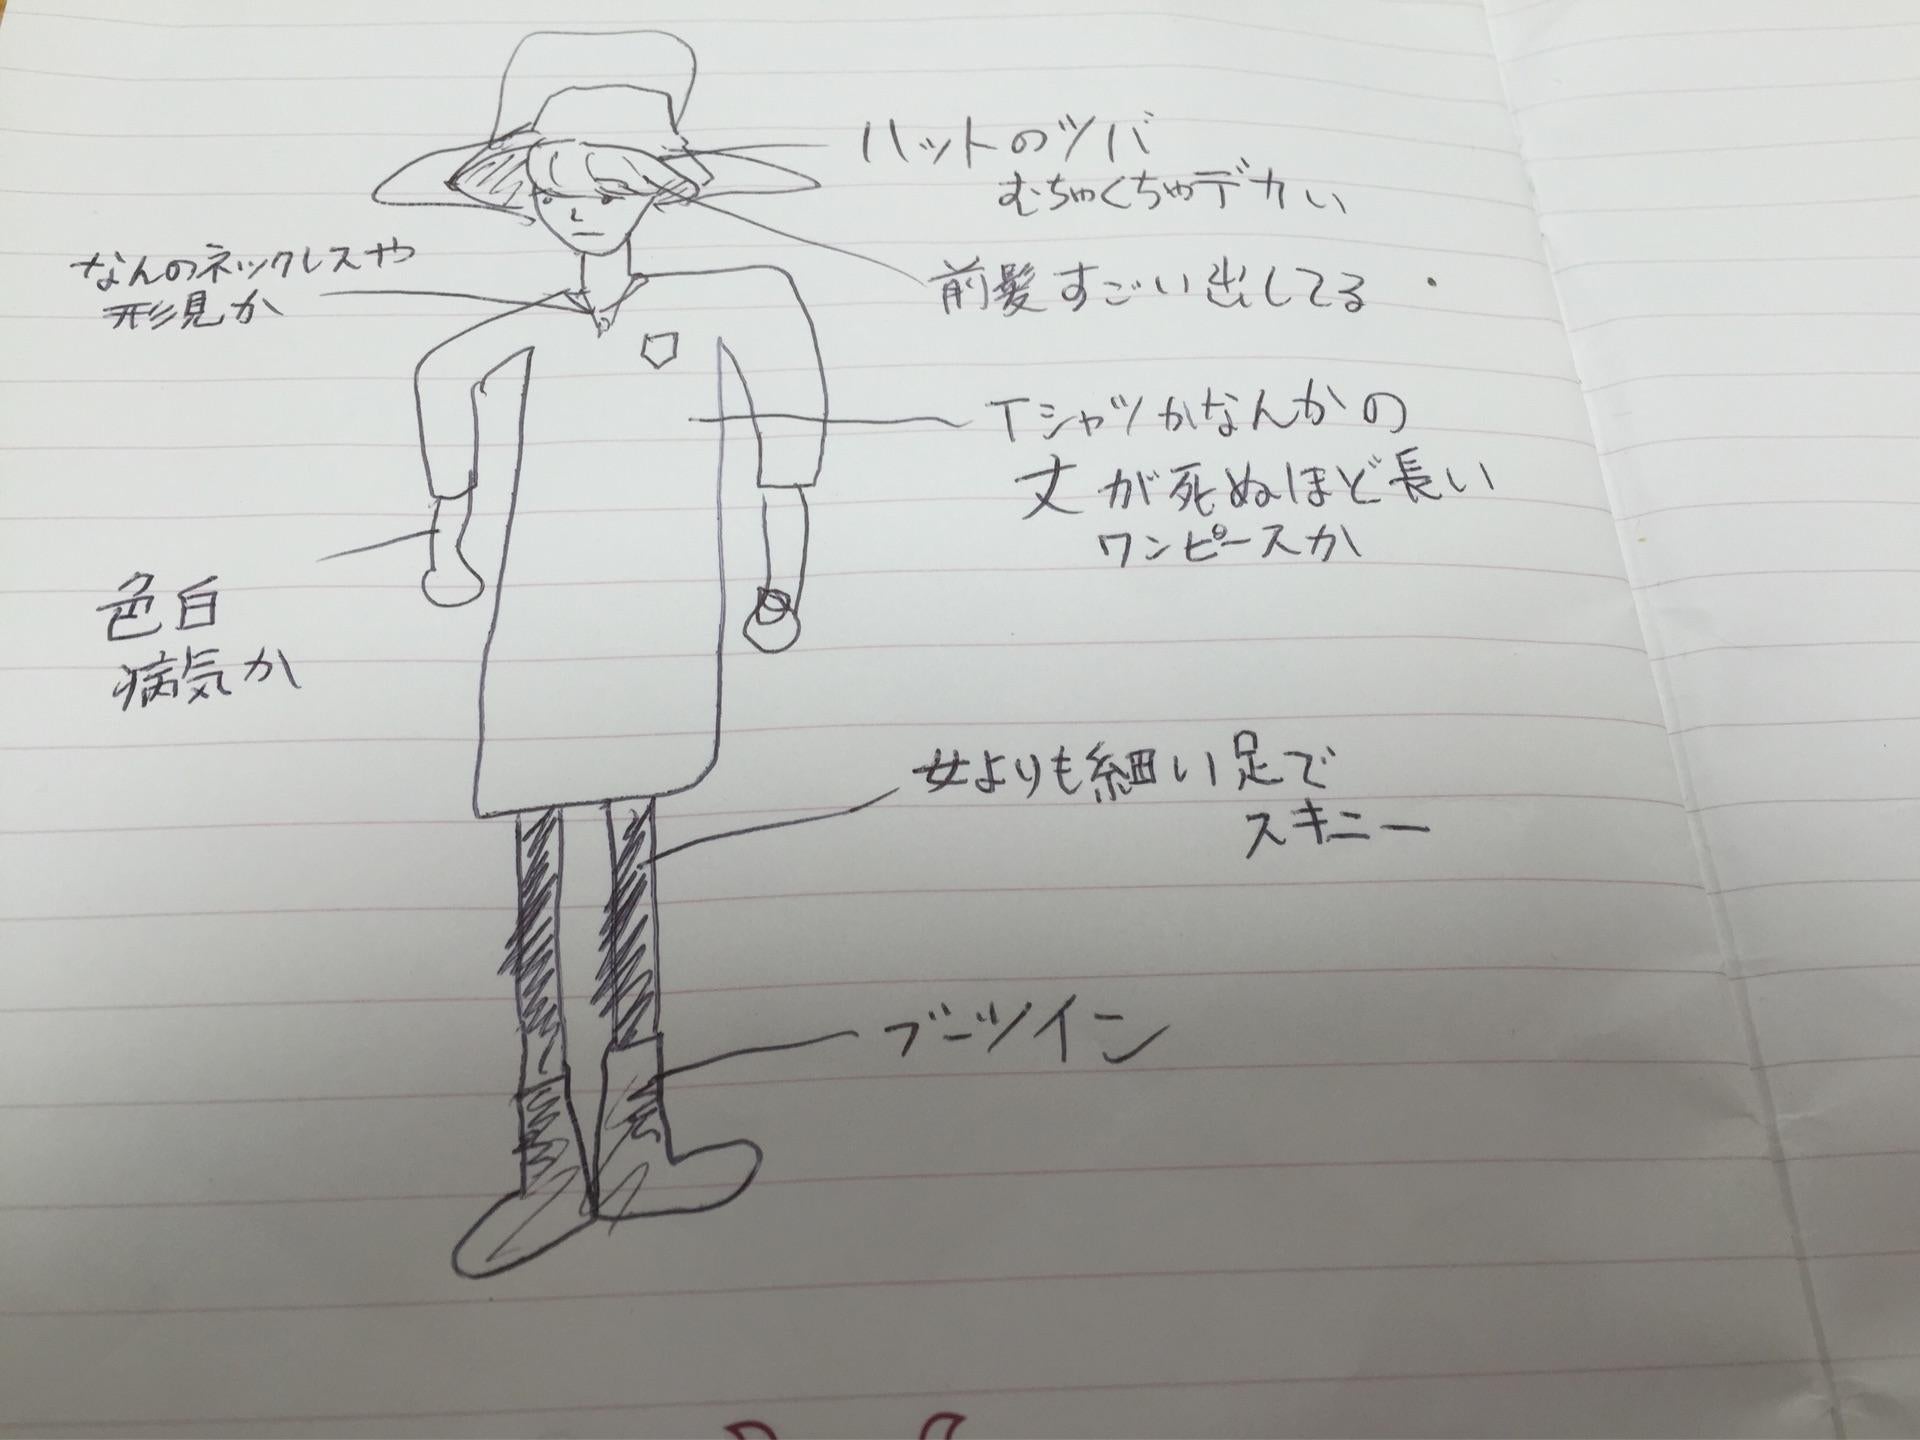 ハットのツバ
むちゃくちゃデカい
なんのネックレスや
形見か
前髪すごい出してる
Tシャツかなんかの
丈が死ぬほど長い
ワンピースか
色白
病気か
女よりも細い足で
スキニー
ブーツイン